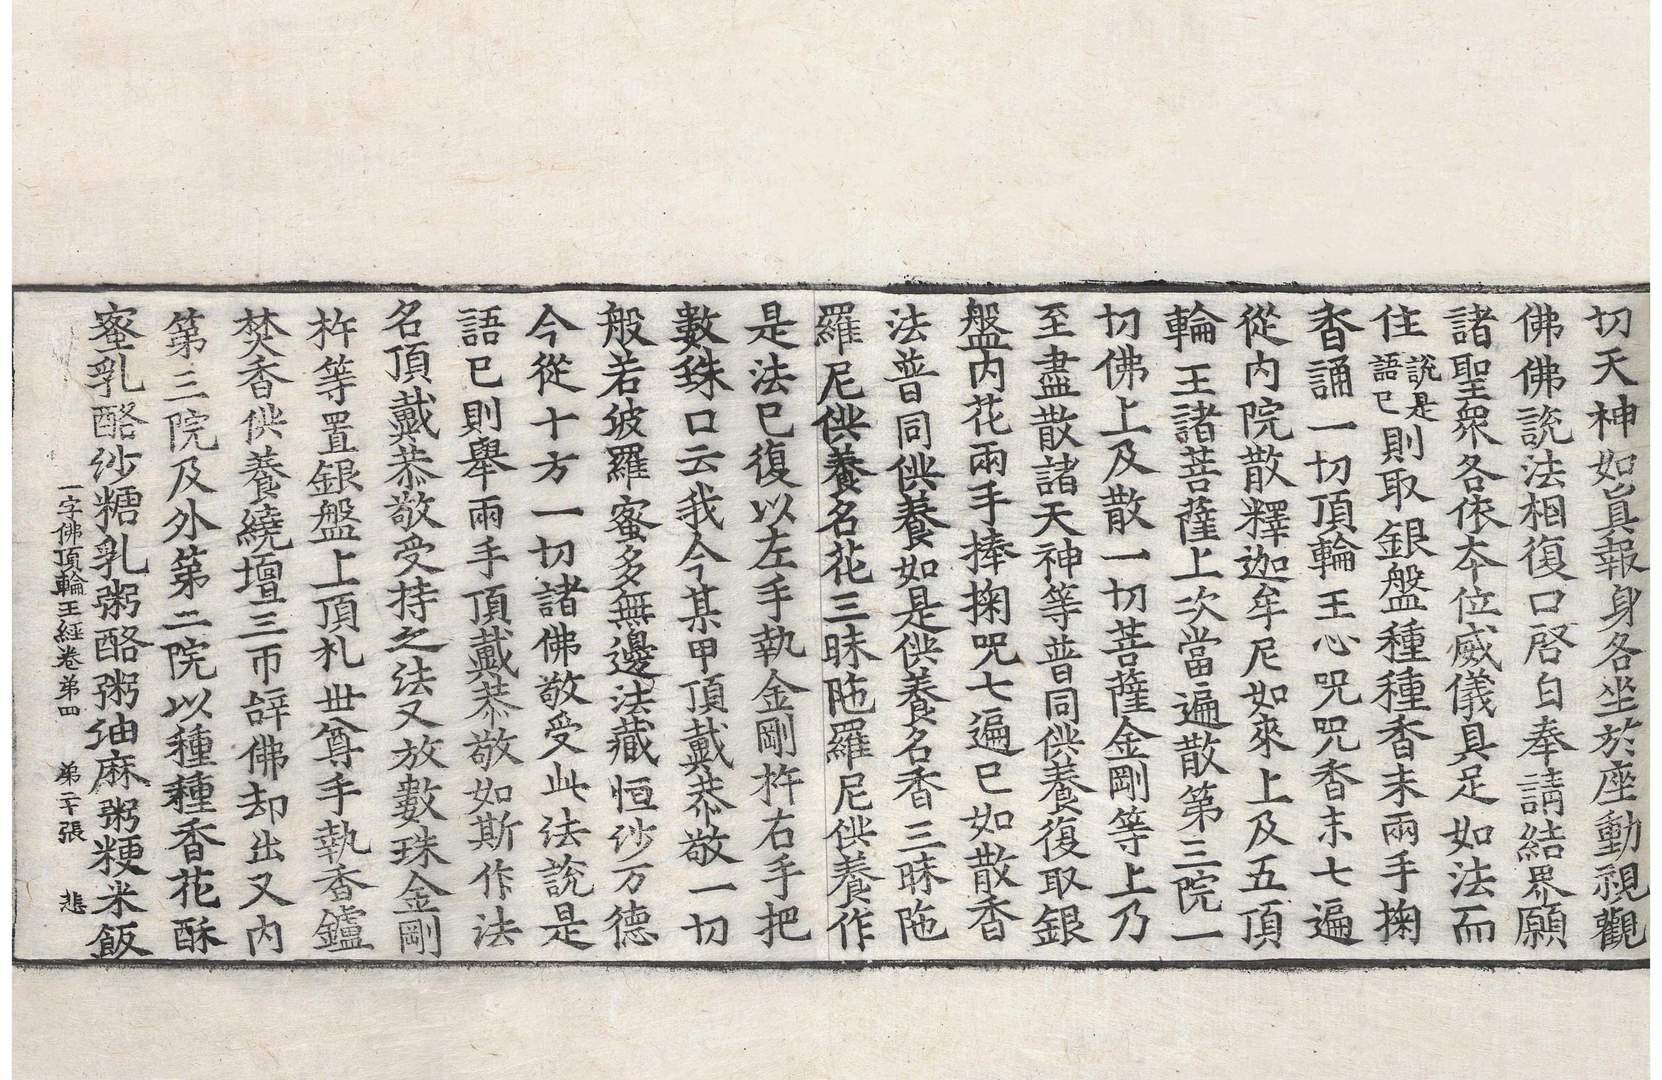 切天神如真報身各坐於座動視觀
佛佛說法相復口啓白奉請結界願
諸聖衆各依本位威儀具足如法而
住說是語已則取銀盤種種香末兩手掬
香誦一切頂輪王心呪呪香末七遍
從內院散釋迦牟尼如來上及五頂
輪王諸菩薩上次當遍散第三院一
切佛上及散一切菩薩金剛等上乃
至盡散諸天神等普同供養復取銀
盤內花兩手捧掬呪七遍已如散香
法普同供養如是供養名香三昧陁
羅尼供養名花三昧陁羅尼供養作
是法已復以左手執金剛杵右手把
數珠口云我今某甲頂戴恭敬一切
般若波羅蜜多無邊法藏恒沙万德
今從十方一切諸佛敬受此法說是
語已則舉兩手頂戴恭敬如斯作法
名頂戴恭敬受持之法又放數珠金剛
杵等置銀盤上頂礼世尊手執香鑪
焚香供養繞壇三帀辞佛却出又內
第三院及外第二院以種種香花酥
蜜乳酪沙糖乳粥酪粥油麻粥粳米飯
一字佛頂輪王經卷第四 第二十張 悲